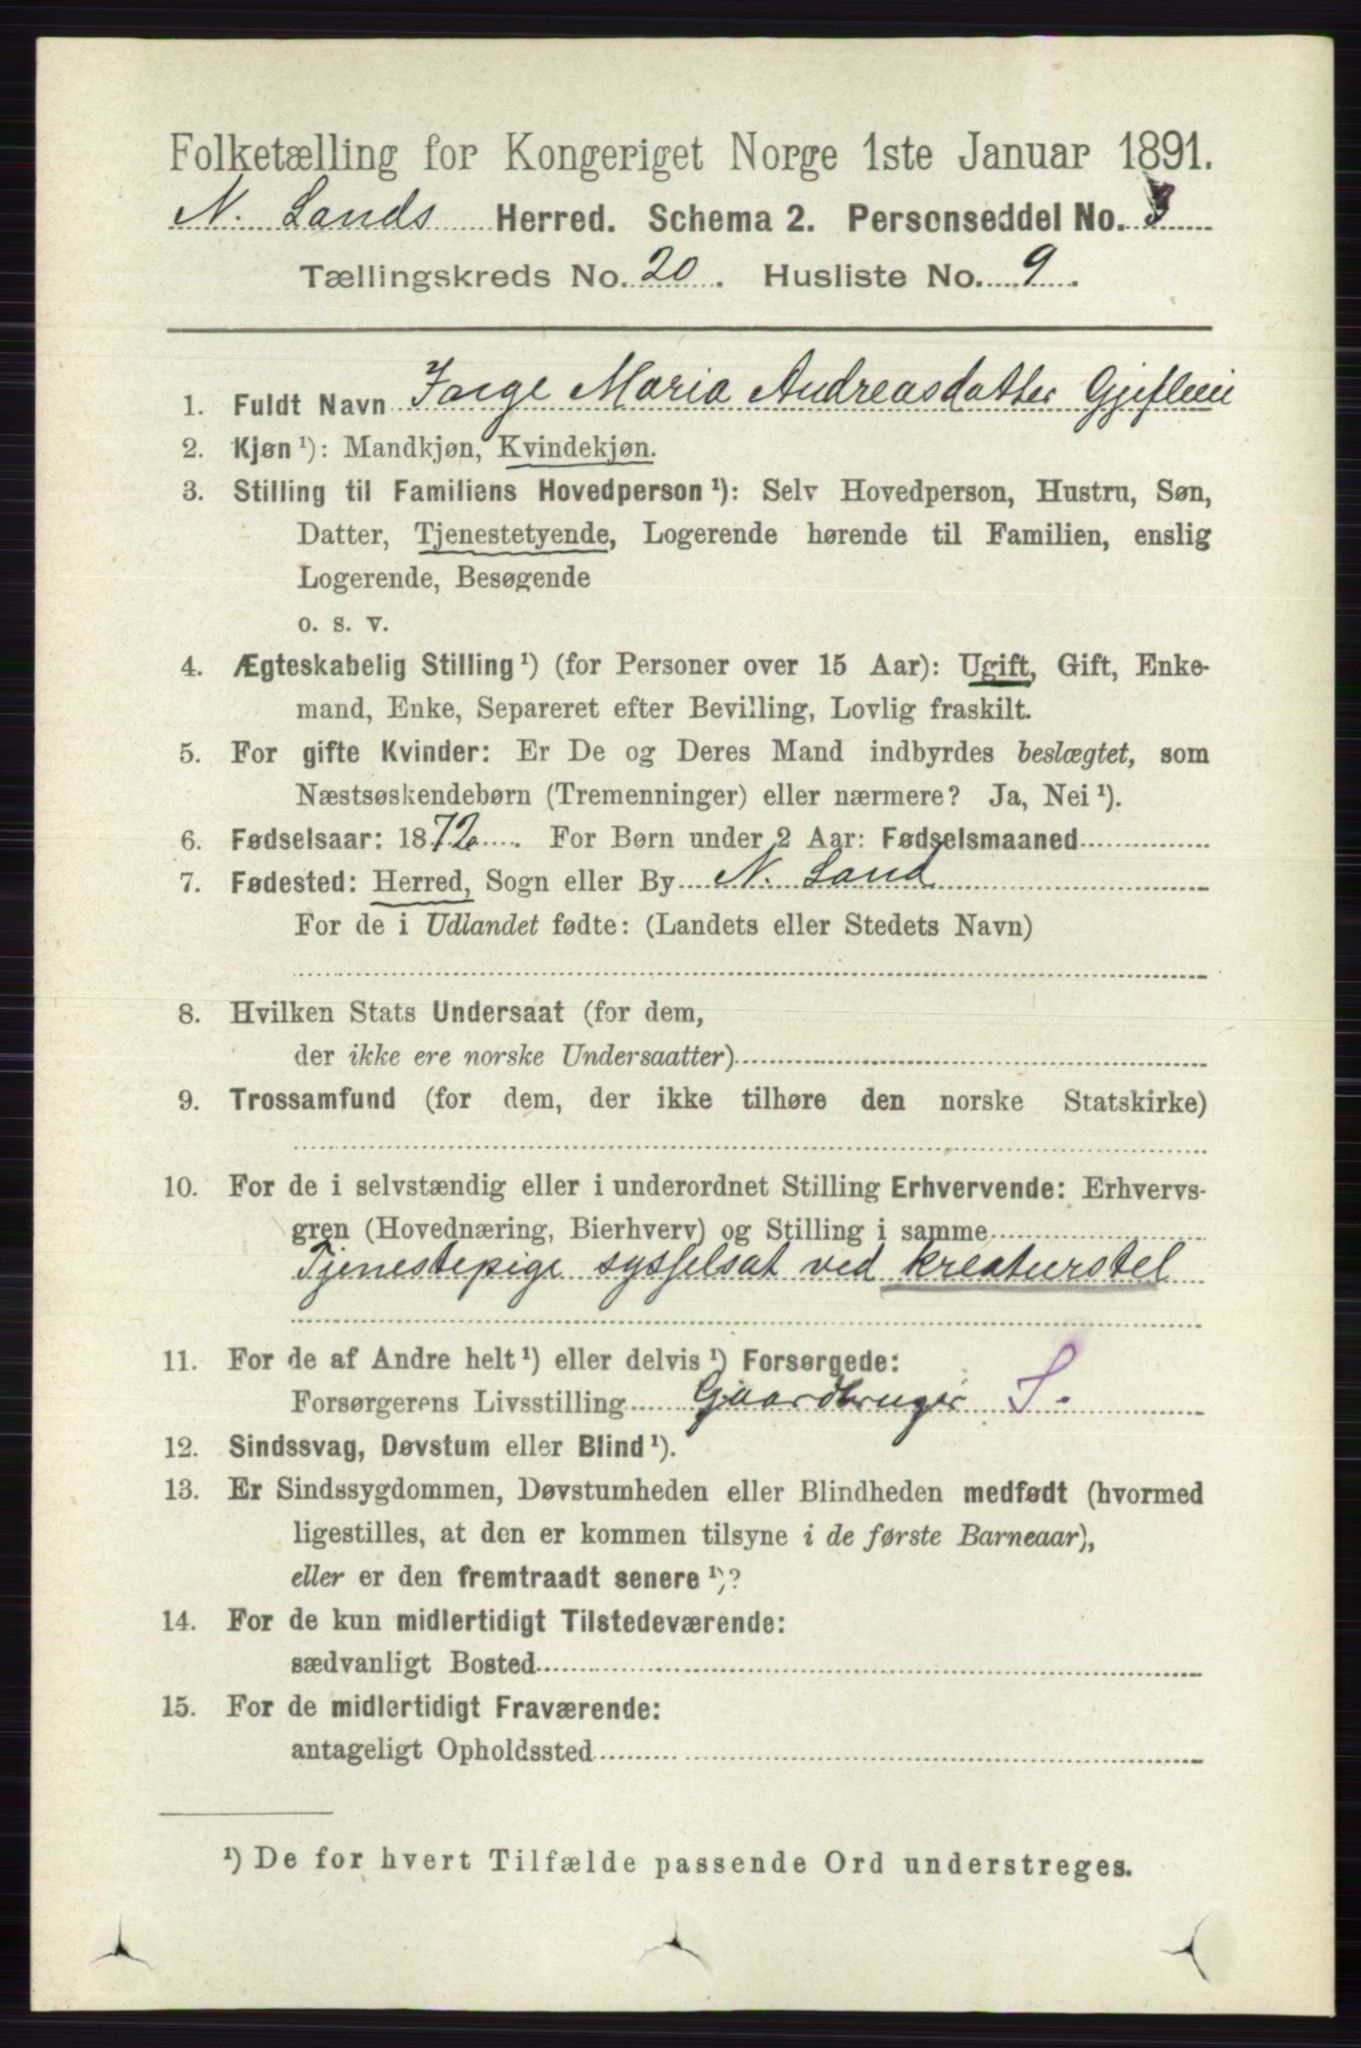 Folketælling for Kongeriget Norge 1ste Januar 1891.
N. Lands Herred. Schema 2. Personseddel No. 3
Tællingskreds No. 20. Husliste No. 9.
1. Fuldt Navn Inge Maria Andreasdatter
2. Kjøn¹): Mandkjøn, Kvindekjøn.
3. Stilling til Familiens Hovedperson¹): Selv Hovedperson, Hustru, Søn,
Datter, Tjenestetyende, Logerende hørende til Familien, enslig
Logerende, Besøgende
o. s. v.
4. Ægteskabelig Stilling¹) (for Personer over 15 Aar): Ugift, Gift, Enke-
mand, Enke, Separeret efter Bevilling, Lovlig fraskilt.
5. For gifte Kvinder: Er De og Deres Mand indbyrdes beslægtet, som
Næstsøskendebørn (Tremenninger) eller nærmere? Ja, Nei¹).
6. Fødselsaar: 1872. For Børn under 2 Aar: Fødselsmaaned
7. Fødested: Herred, Sogn eller By N. Land
For de i Udlandet fødte: (Landets eller Stedets Navn)
8. Hvilken Stats Undersaat (for dem,
der ikke ere norske Undersaatter)
9. Trossamfund (for dem, der ikke tilhøre den norske Statskirke)
10. For de i selvstændig eller i underordnet Stilling Erhvervende: Erhvervs-
gren (Hovednæring, Bierhverv) og Stilling i samme
Tjenestepige sysselsat ved kreaturstel
11. For de af Andre helt¹) eller delvis¹) Forsørgede:
Forsørgerens Livsstilling Gaardbruger S.
12. Sindssvag, Døvstum eller Blind¹).
13. Er Sindssygdommen, Døvstumheden eller Blindheden medfødt (hvormed
ligestilles, at den er kommen tilsyne i de første Barneaar),
eller er den fremtraadt senere¹)?
14. For de kun midlertidigt Tilstedeværende:
sædvanligt Bosted
15. For de midlertidigt Fraværende:
antageligt Opholdssted
¹) De for hvert Tilfælde passende Ord understreges.